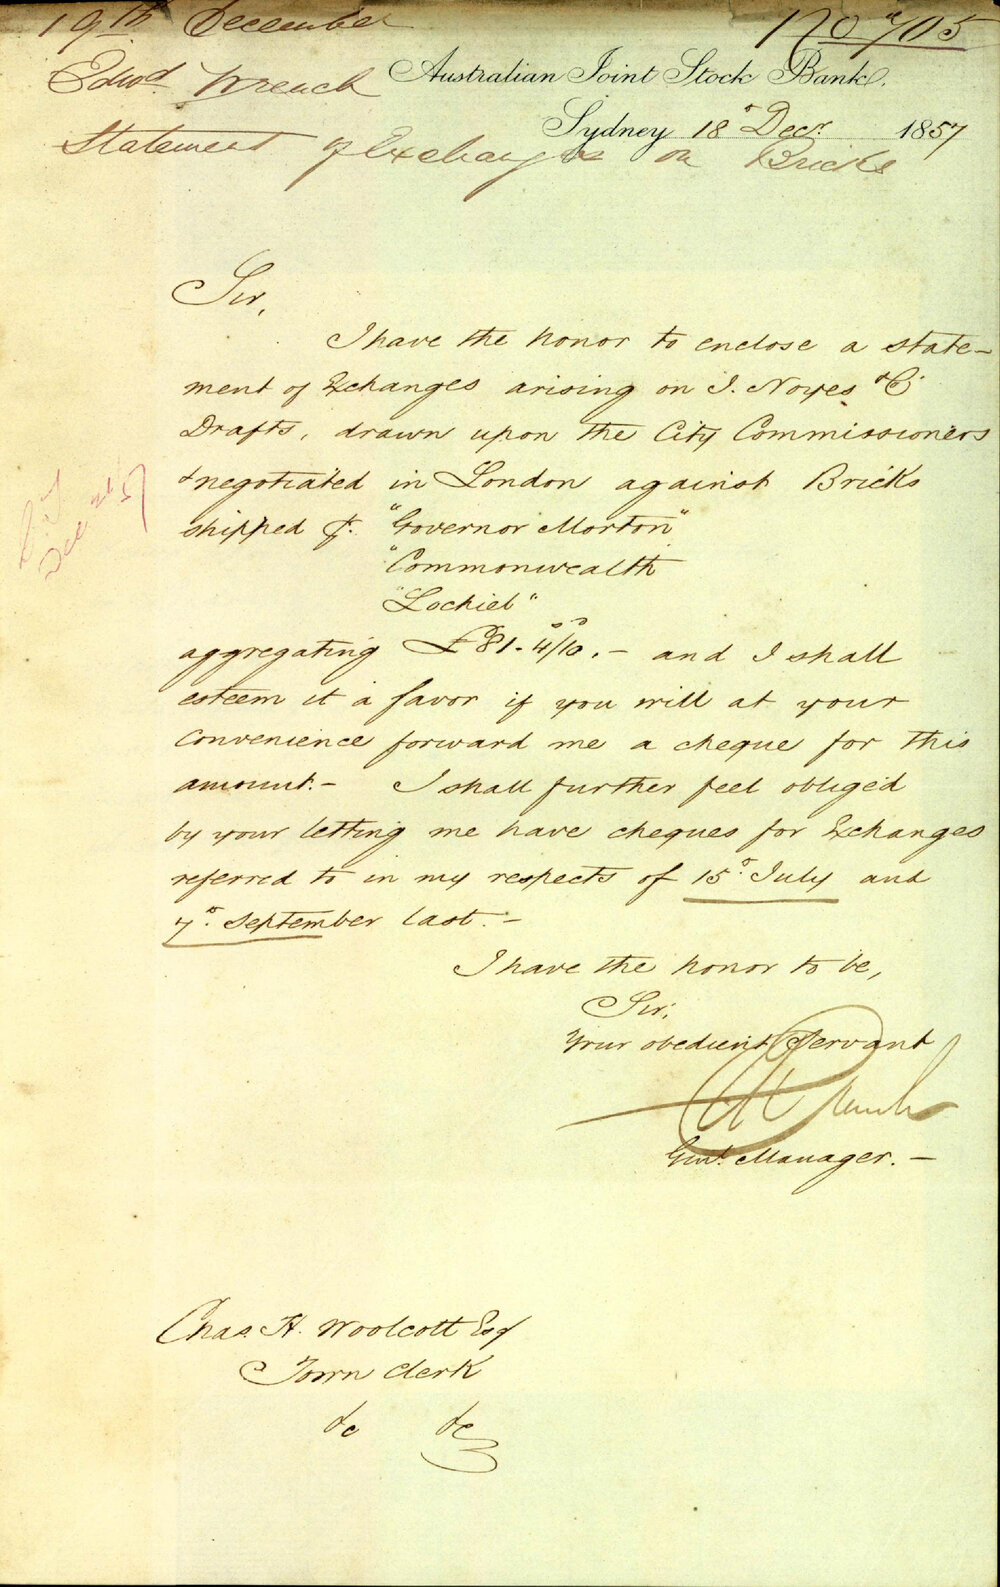 19th December
No 705
Edwd. Wrench
Australian Joint Stock Bank.
Sydney 18 Decr. 1857
Statement of Exchanges on Bricks
Sir,
I have the honor to enclose a state-
ment of Exchanges arising on I. Noyes & Co
Drafts, drawn upon the City Commissioners
& negotiated in London against Bricks
shipped p. "Governor Morton"
"Commonwealth
"Lochiel"
aggregating £81-4/10.- and I shall
esteem it a favor if you will at your
convenience forward me a cheque for this
amount.- I shall further feel obliged
by your letting me have cheques for Exchanges
referred to in my respects of 15 July and
7 September last.-
I have the honor to be,
Sir,
Your obedient Servant
Wrench
Genl. Manager.-
Chas. H. Woolcott Esq
Town Clerk
&c &c